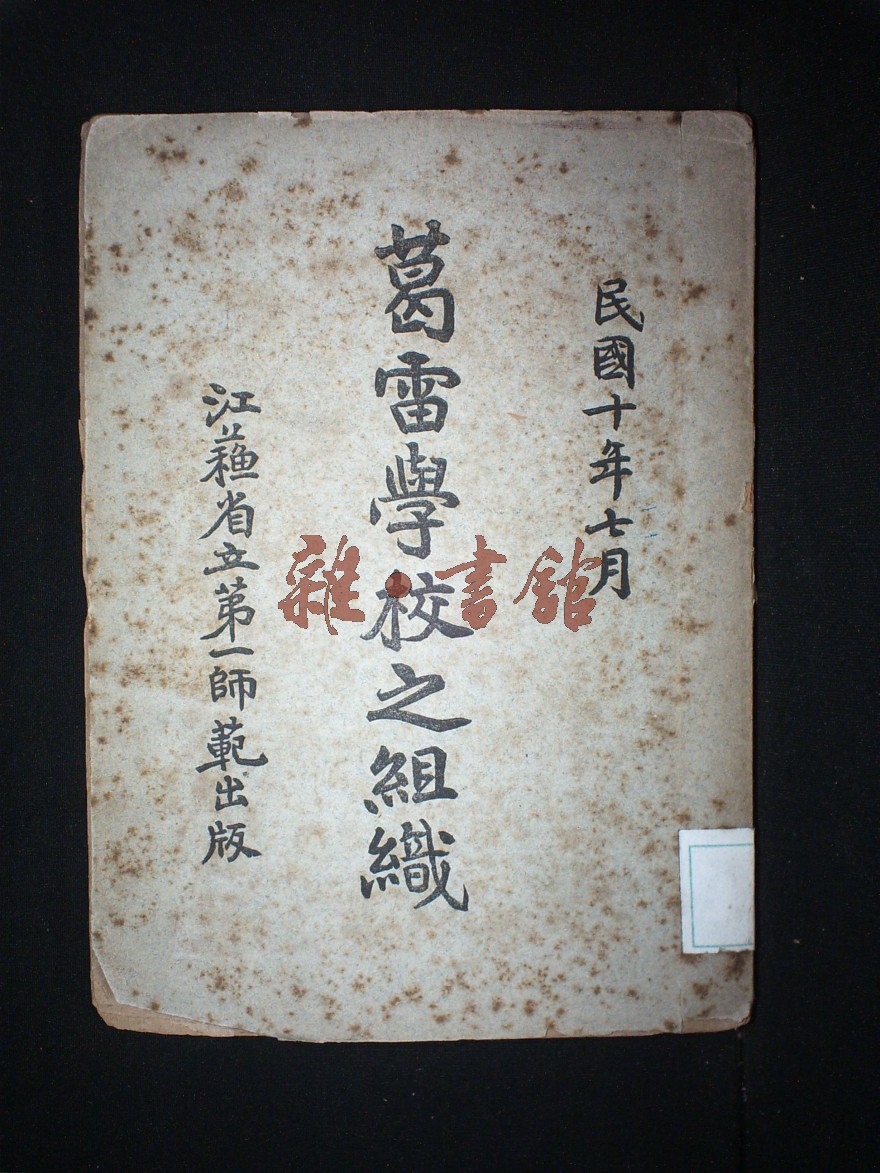 民國十年七月
葛雷學校之組織
江蘇省立第一師範出版
雜·書館